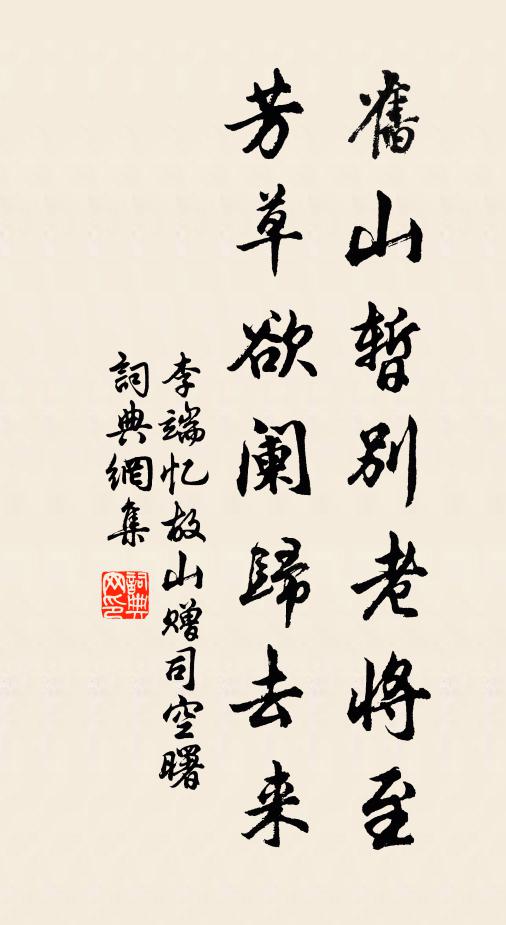 舊山暫別老將至
芳草欲阑歸去来
李端忆故山赠司空曙
詞典網集
詞典网印